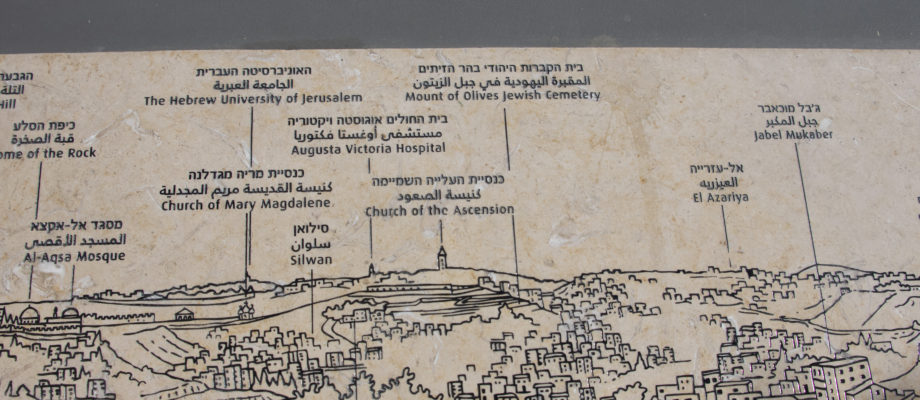 הגבעה
التلة
Hill
האוניברסיטה העברית
الجامعة العبرية
The Hebrew University of Jerusalem
בית הקברות היהודי בהר הזיתים
المقبرة اليهودية في جبل الزيتون
Mount of Olives Jewish Cemetery
ג'בל מוכאבר
جبل المكبر
Jabel Mukaber
כיפת הסלע
قبة الصخرة
ome of the Rock
בית החולים אוגוסטה ויקטוריה
مستشفى أوغستا فكتوريا
Augusta Victoria Hospital
כנסיית מריה מגדלנה
كنيسة القديسة مريم المجدلية
Church of Mary Magdalene
כנסיית העלייה השמיימה
كنيسة الصعود
Church of the Ascension
אל-עזרייה
العيزريه
El Azariya
מסגד אל-אקצא
المسجد الأقصى
Al-Aqsa Mosque
סילואן
سلوان
Silwan